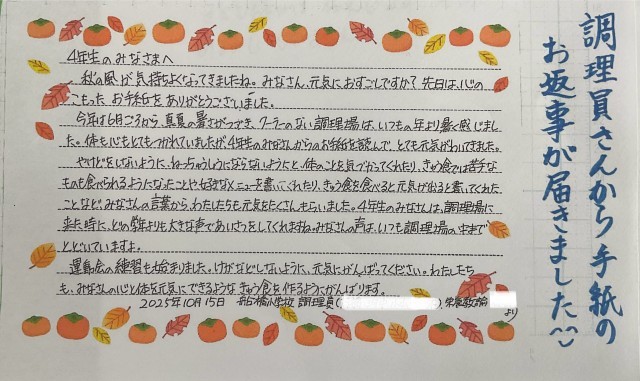 調理員さんから手紙の
お返事が届きました^^
4年生のみなさまへ
秋の風が気持ちよくなってきましたね。みなさん、元気におすごしですか？先日は、心の
こもったお手紙をありがとうございました。
今年は6月ごろから、真夏の暑さがつづき、クーラーのない調理場は、いつもの年より暑く感じまし
た。体も心もとてもつかれていましたが4年生のみなさんからのお手紙を読んで、とても元気がわいてきました。
やけどをしないように、ねっちゅうしょうにならないようにと、体のことを気づかってくれたり、きゅう食では苦手な
ものも食べられるようになったことや好きなメニューを書いてくれたり、きゅう食を食べると元気が出ると書いてくれた
ことなど、みなさんの言葉から、わたしたちも元気をたくさんもらいました。4年生のみなさんは、調理場に
来た時に、どの学年よりも大きな声であいさつをしてくれますね。みなさんの声は、いつも調理場の中まで
とどいていますよ。
運動会の練習も始まりました。けがなどしないように、元気にがんばってください。わたしたち
も、みなさんの心と体を元気にできるようなきゅう食を作るようにがんばります。
2025年10月15日 船橋小学校 調理員( )、栄養教諭
より